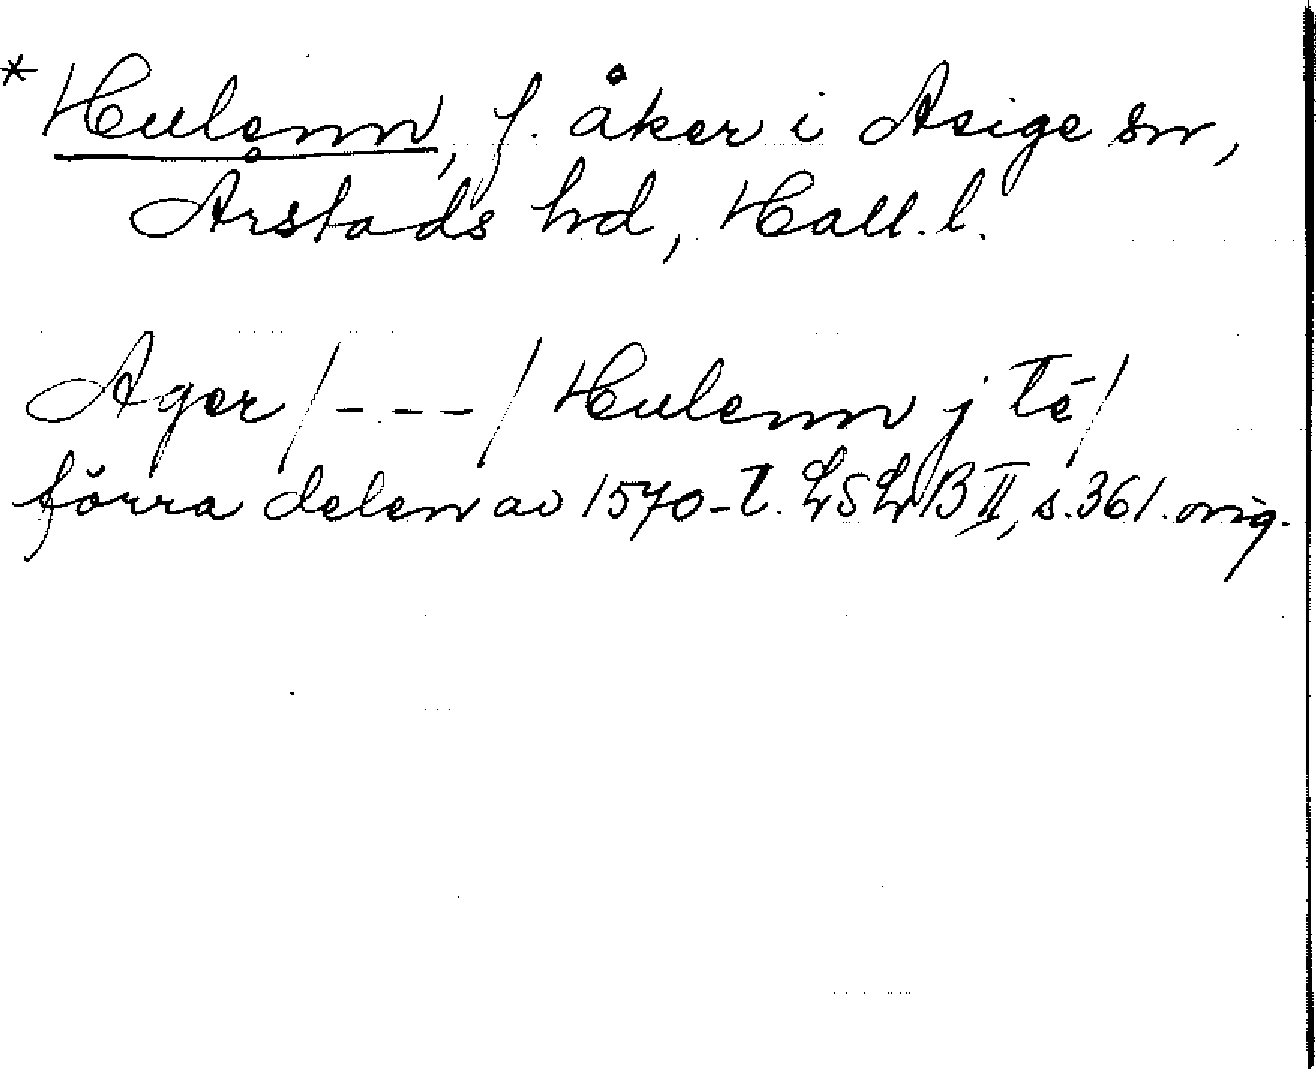 * Hulenn, f. åker i Asige sn,
Årstads hd, Hall. l.
Ager /---/ Hulenn j Té/
förra delen av 1570-t. LSLB II, s. 361. orig.